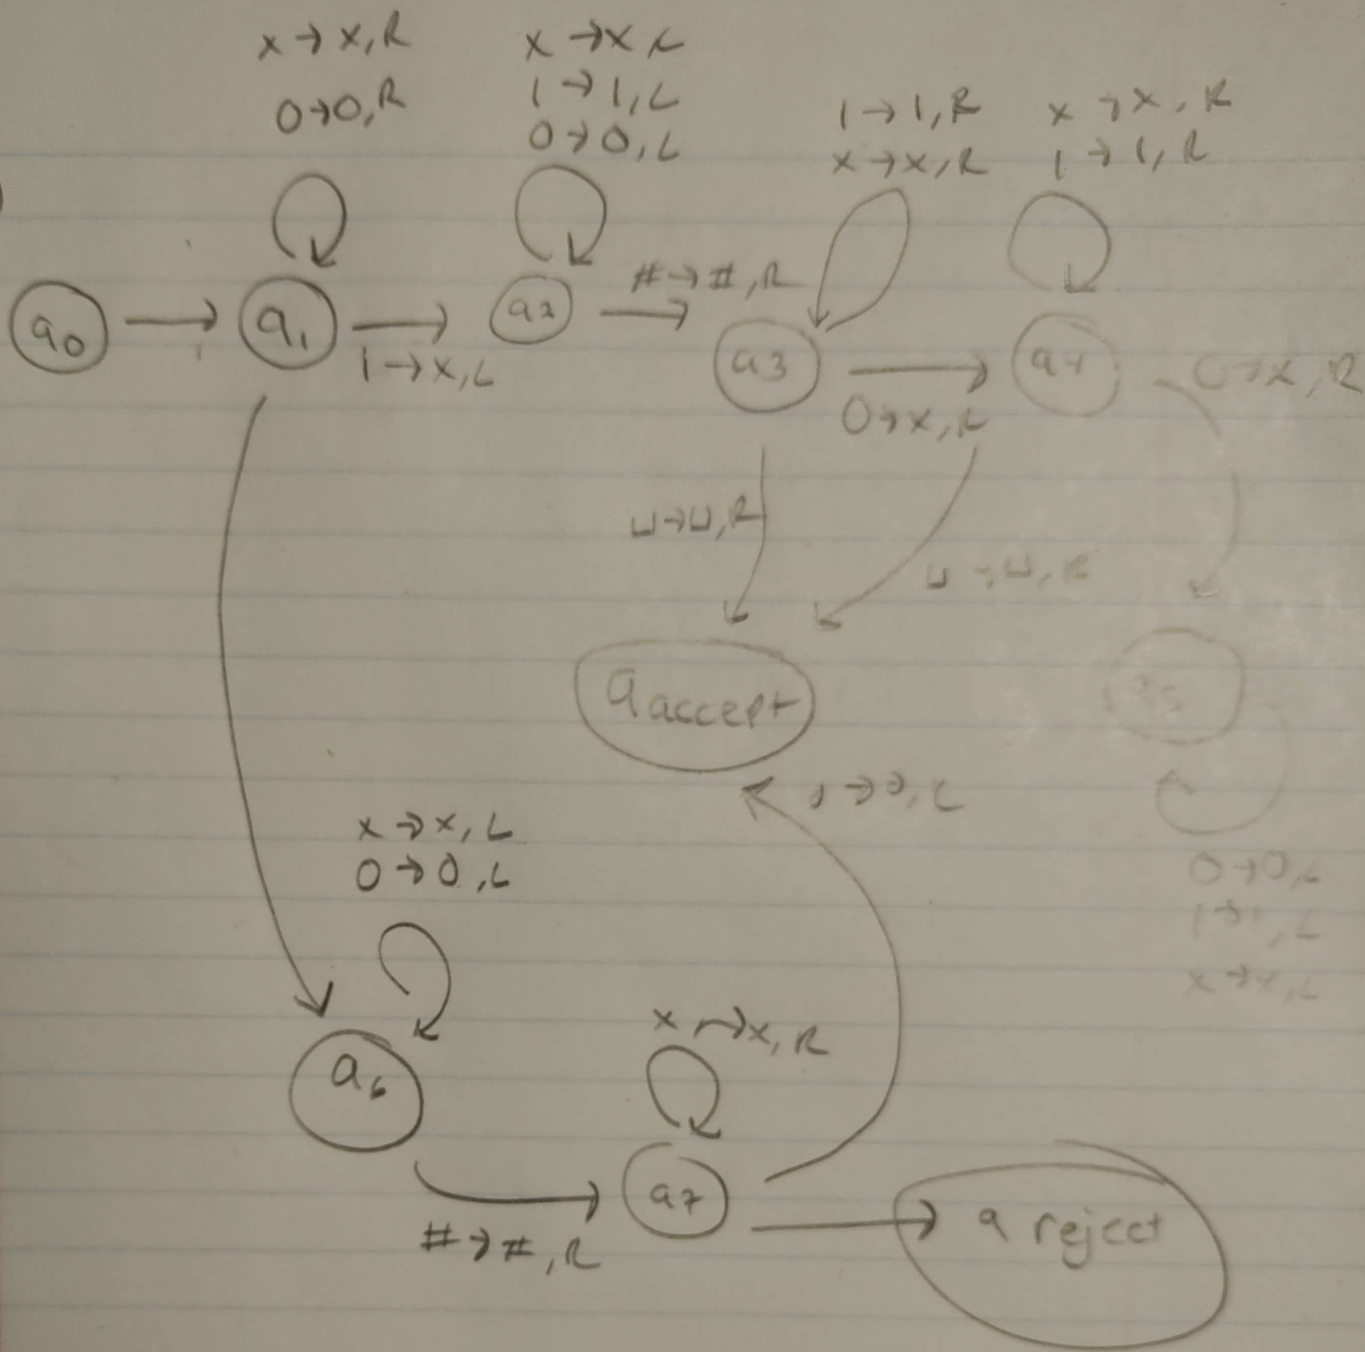 x→x,R
0→0,R
x→x,L
1→1,L
0→0,L
1→1,R
x→x,R
x→x,R
1→1,R
q0
q1
1→x,L
q2
#→#,R
q3
0→x,R
q4
0→x,R
⊔→⊔,R
⊔→⊔,R
q accept
q5
0→0,L
1→1,L
x→x,L
x→x,L
0→0,L
q6
#→#,R
x→x,R
q7
q reject